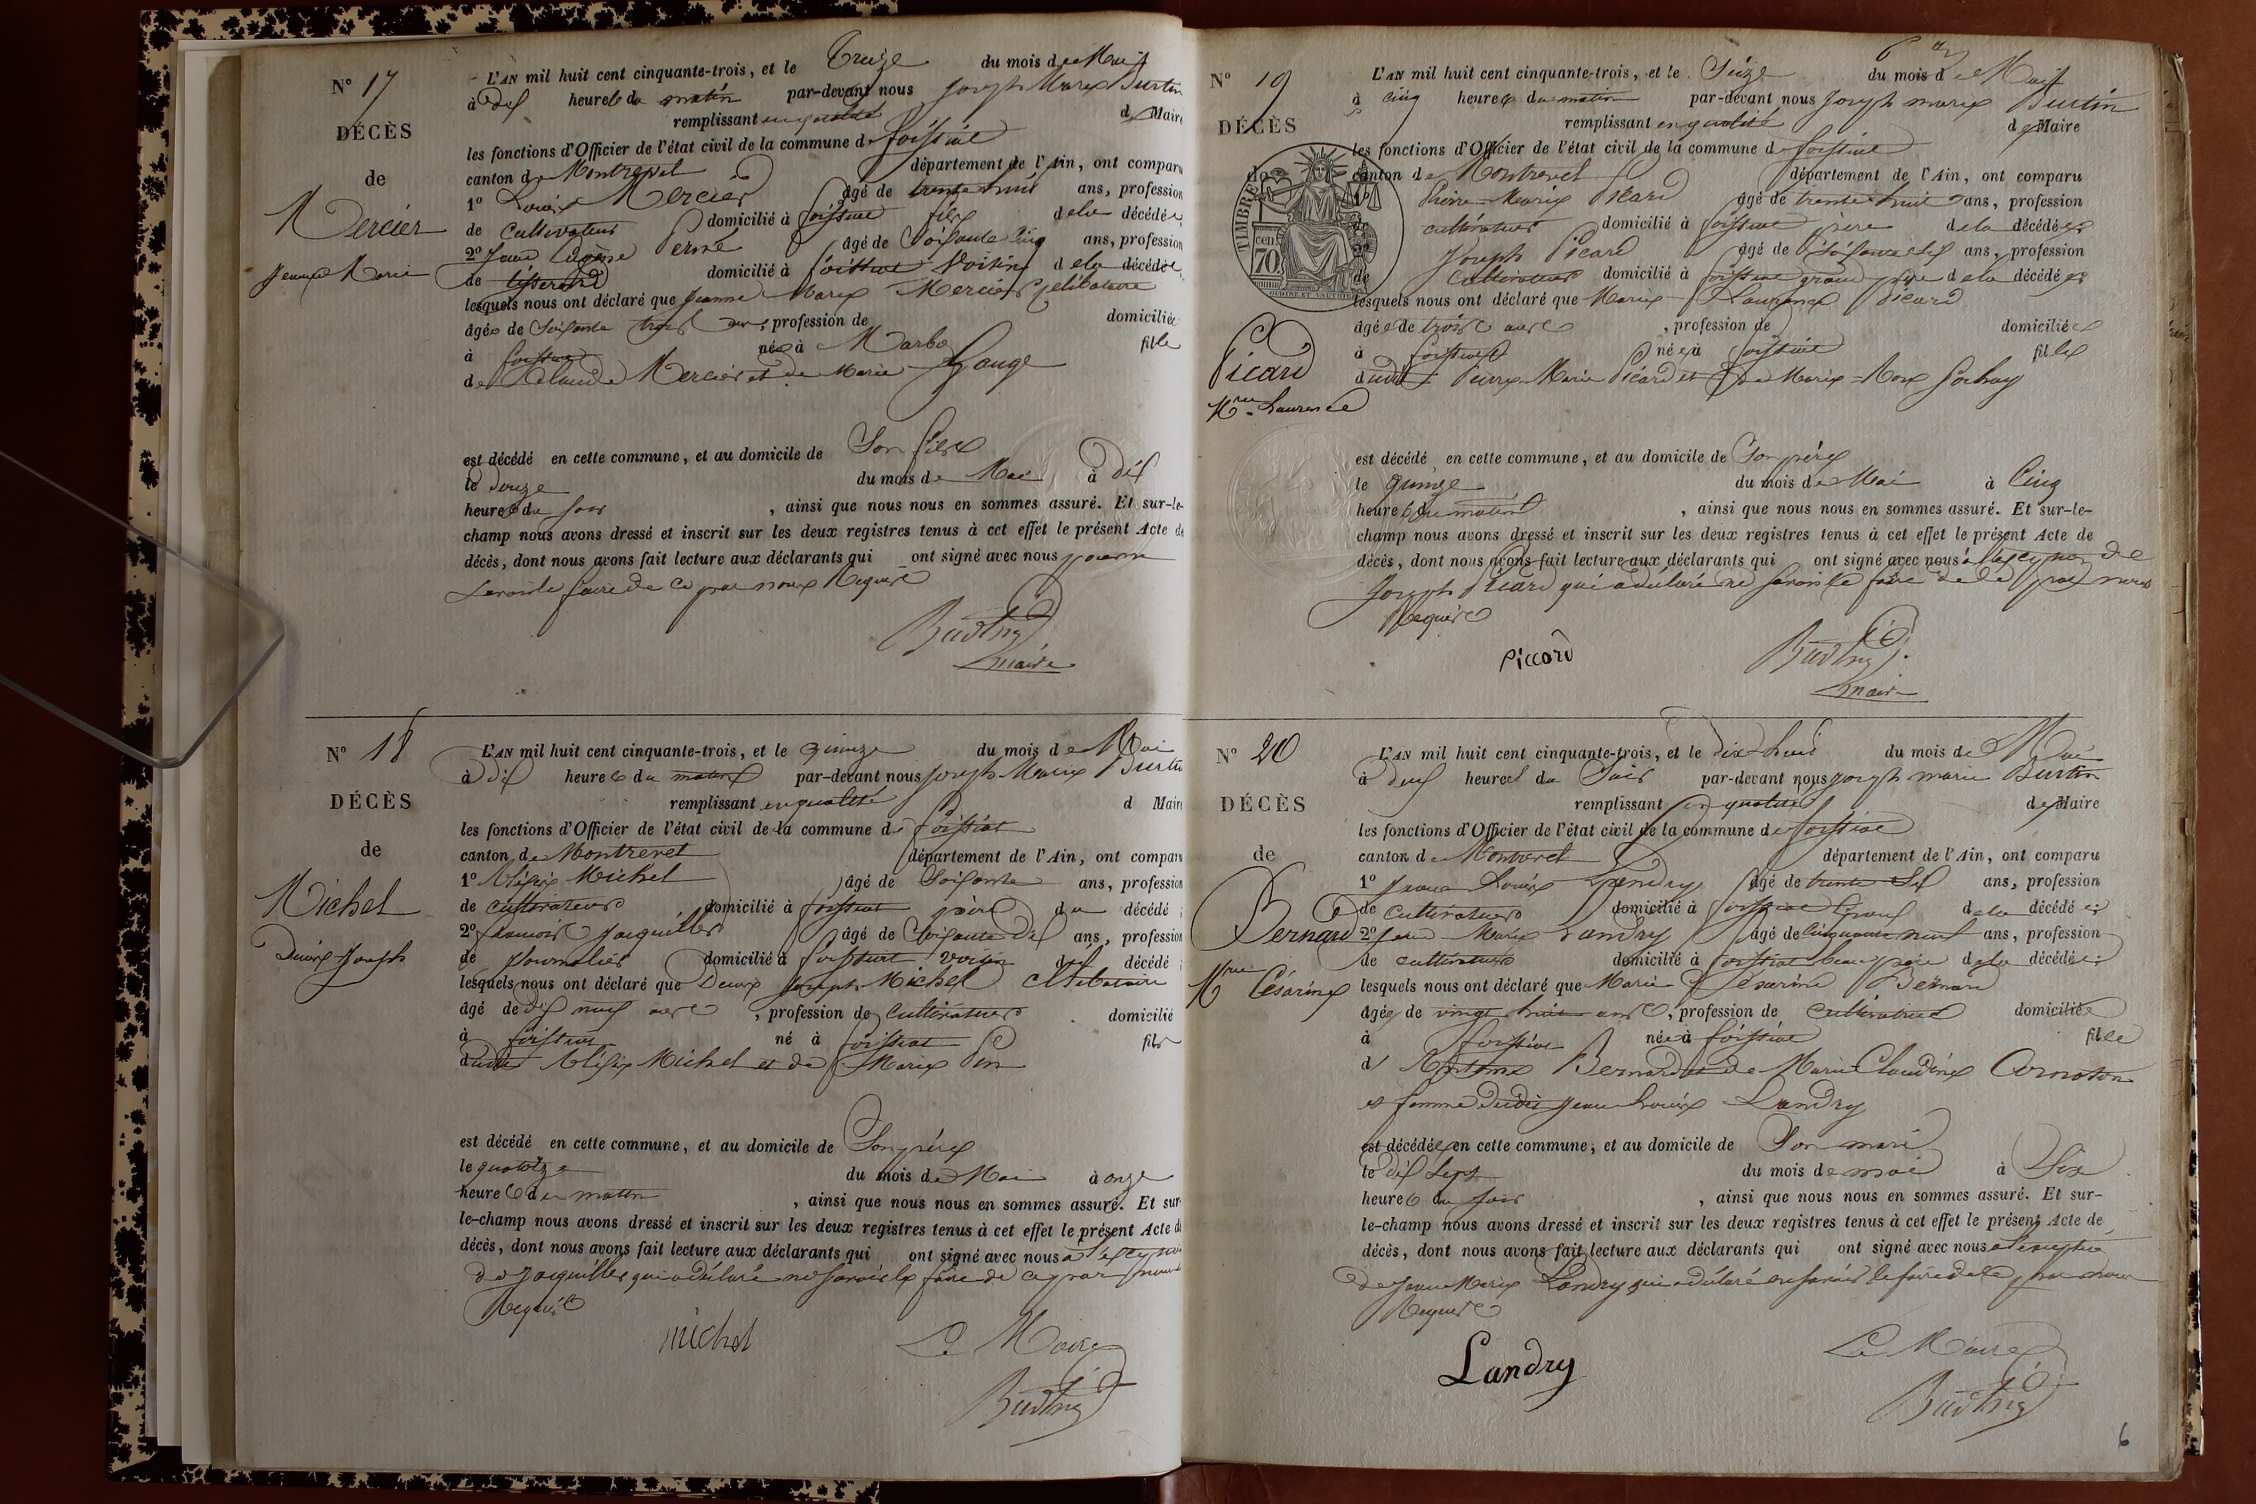 N° 17
DÉCÈS
de
Mercier
Jeanne Marie
L'AN mil huit cent cinquante-trois, et le Treize du mois de Mai
à dix heures du matin par-devant nous Joseph Marie Burtin
remplissant en qualité de Maire
les fonctions d'Officier de l'état civil de la commune de foissiat
canton de Montrevel département de l'Ain, ont comparu
1° Louis Mercier âgé de trente huit ans, profession
de cultivateur domicilié à foissiat frère de la décédée
2° Jean âgé de Soixante cinq ans, profession
de tisserand domicilié à foissiat Voisin de la décédée,
lesquels nous ont déclaré que Jeanne Marie Mercier célibataire
âgée de Soixante trois ans, profession de domiciliée
à foissiat née à Marboz fille
de Claude Mercier et de Marie Gauge
est décédé en cette commune, et au domicile de Son frère
le douze du mois de Mai à dix
heures du soir, ainsi que nous nous en sommes assuré. Et sur-le-
champ nous avons dressé et inscrit sur les deux registres tenus à cet effet le présent Acte de
décès, dont nous avons fait lecture aux déclarants qui ont signé avec nous
Savoir le faire de ce par nous Requis
Burtin
maire
N° 18
DÉCÈS
de
Michel
Denis Joseph
L'AN mil huit cent cinquante-trois, et le quinze du mois de Mai
à dix heures du matin par-devant nous Joseph Marie Burtin
remplissant en qualité d Maire
les fonctions d'Officier de l'état civil de la commune de foissiat
canton de Montrevel département de l'Ain, ont comparu
1° Michel âgé de Soixante ans, profession
de cultivateur domicilié à foissiat père du décédé;
2° françois Jacquiller âgé de Soixante dix ans, profession
de Journalier domicilié à foissiat voisin du décédé;
lesquels nous ont déclaré que Denis Joseph Michel célibataire
âgé de dix neuf ans, profession de cultivateur domicilié
à foissiat né à foissiat fils
dudit Michel et de Marie Pin
est décédé en cette commune, et au domicile de Son père
le quatorze du mois de Mai à onze
heures du matin, ainsi que nous nous en sommes assuré. Et sur-
le-champ nous avons dressé et inscrit sur les deux registres tenus à cet effet le présent Acte de
décès, dont nous avons fait lecture aux déclarants qui ont signé avec nous à l'exception
de Jacquiller qui a déclaré ne savoir le faire de ce par nous
Requis
michel
Le Maire
Burtin
6
N° 19
DÉCÈS
de
TIMBRE
70
Picard
Mrie Laurence
L'AN mil huit cent cinquante-trois, et le Seize du mois de Mai
à cinq heures du matin par-devant nous Joseph marie Burtin
remplissant en qualité de Maire
les fonctions d'Officier de l'état civil de la commune de foissiat
canton de Montrevel département de l'Ain, ont comparu
Pierre Marie Picard âgé de trente huit ans, profession
cultivateur domicilié à foissiat père de la décédée;
Joseph Picard âgé de Soixante dix ans, profession
de cultivateur domicilié à foissiat grand père de la décédée;
lesquels nous ont déclaré que Marie Laurence Picard
âgée de trois ans, profession de domiciliée
à foissiat née à foissiat fille
dudit Pierre Marie Picard et de Marie Rose Sochay
est décédé en cette commune, et au domicile de Son père
le quinze du mois de Mai à Cinq
heures du matin, ainsi que nous nous en sommes assuré. Et sur-le-
champ nous avons dressé et inscrit sur les deux registres tenus à cet effet le présent Acte de
décès, dont nous avons fait lecture aux déclarants qui ont signé avec nous à l'exception de
Joseph Picard qui a déclaré ne savoir le faire de ce par nous
Requis
Piccard
Burtin
maire
N° 20
DÉCÈS
de
Bernard
Mrie Césarine
L'AN mil huit cent cinquante-trois, et le dix-huit du mois de Mai
à deux heures du Soir par-devant nous Joseph marie Burtin
remplissant en qualité de Maire
les fonctions d'Officier de l'état civil de la commune de foissiat
canton de Montrevel département de l'Ain, ont comparu
1° Jean Louis Landry âgé de trente Six ans, profession
de cultivateur domicilié à foissiat Epoux de la décédée;
2° Jean Marie Landry âgé de cinquante neuf ans, profession
de cultivateur domicilié à foissiat beau père de la décédée;
lesquels nous ont déclaré que Marie Césarine Bernard
âgée de vingt huit ans, profession de cultivatrice domiciliée
à foissiat née à foissiat fille
d' Antoine Bernard et de Marie Claudine Cornaton
et femme dudit Jean Louis Landry
est décédée en cette commune, et au domicile de Son mari
le dix Sept du mois de mai à Six
heures du soir, ainsi que nous nous en sommes assuré. Et sur-
le-champ nous avons dressé et inscrit sur les deux registres tenus à cet effet le présent Acte de
décès, dont nous avons fait lecture aux déclarants qui ont signé avec nous à l'exception
de Jean Marie Landry qui a déclaré ne savoir le faire de ce par nous
Requis
Landry
Le Maire
Burtin
6